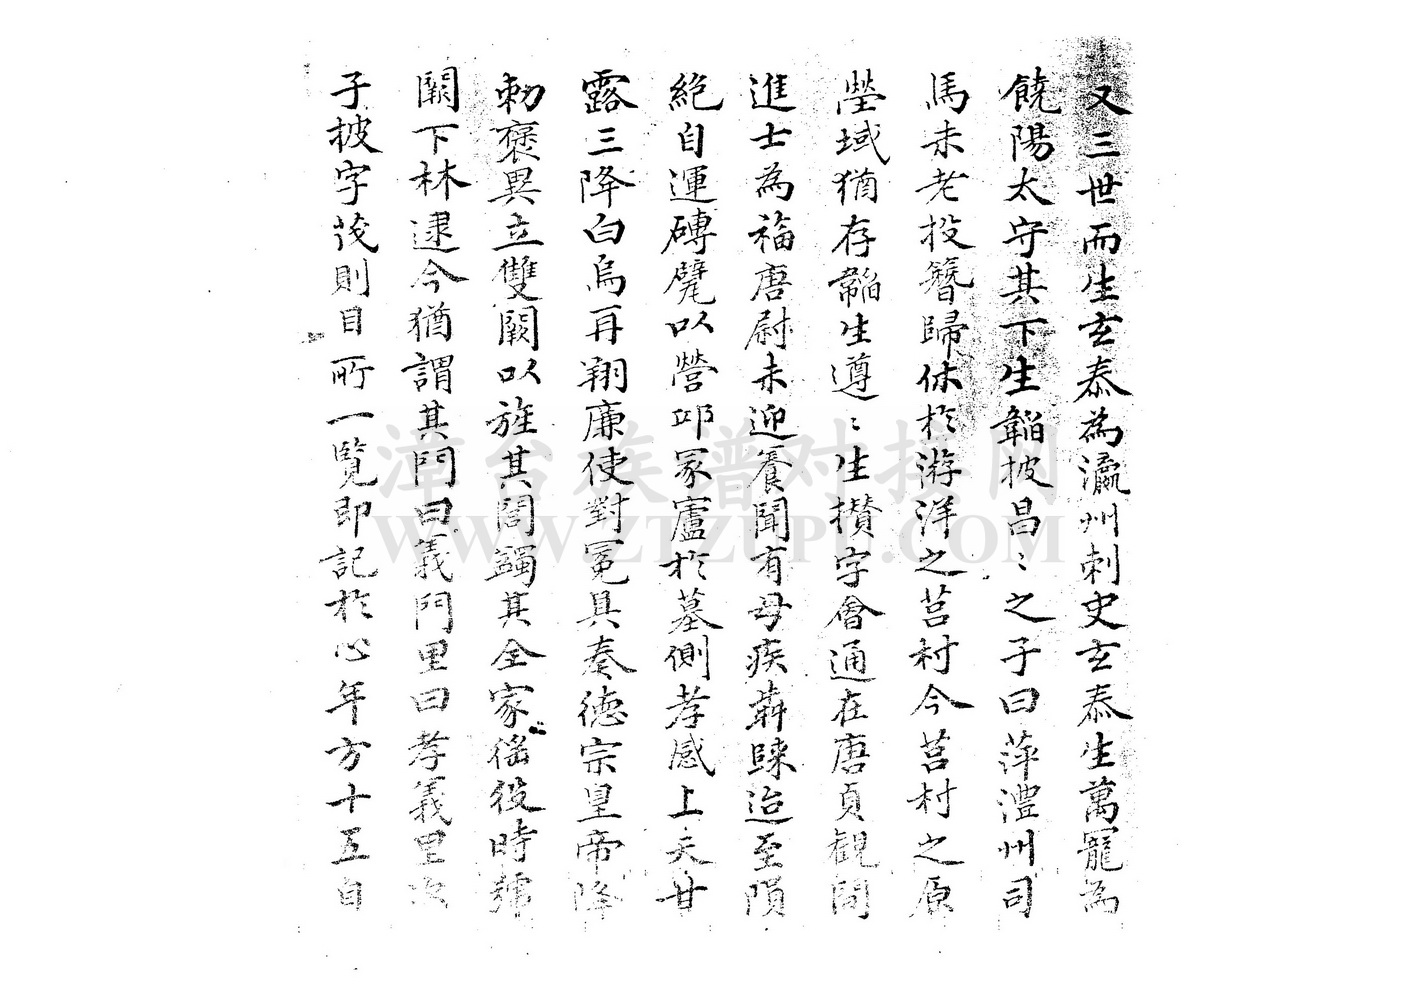 又三世而生玄泰為瀛州刺史玄泰生萬寵為
饒陽太守其下生韜披昌〻之子曰萍澧州司
馬未老投簪歸休於游洋之莒村今莒村之原
塋域猶存韜生遵〻生攢字會通在唐貞觀間
進士為福唐尉未迎養聞有母疾棄踈迨至隕
絕自運磚甓以營邱冢廬於墓側孝感上天甘
露三降白烏再翔廉使對冕具奏德宗皇帝降
勅褒異立雙闕以旌其閭蠲其全家徭役時號
闕下林逮今猶謂其門曰義門里曰孝義里次
子披字茂則目所一覽即記於心年方十五自
漳台族谱对接网
WWW.ZTZUPU.COM